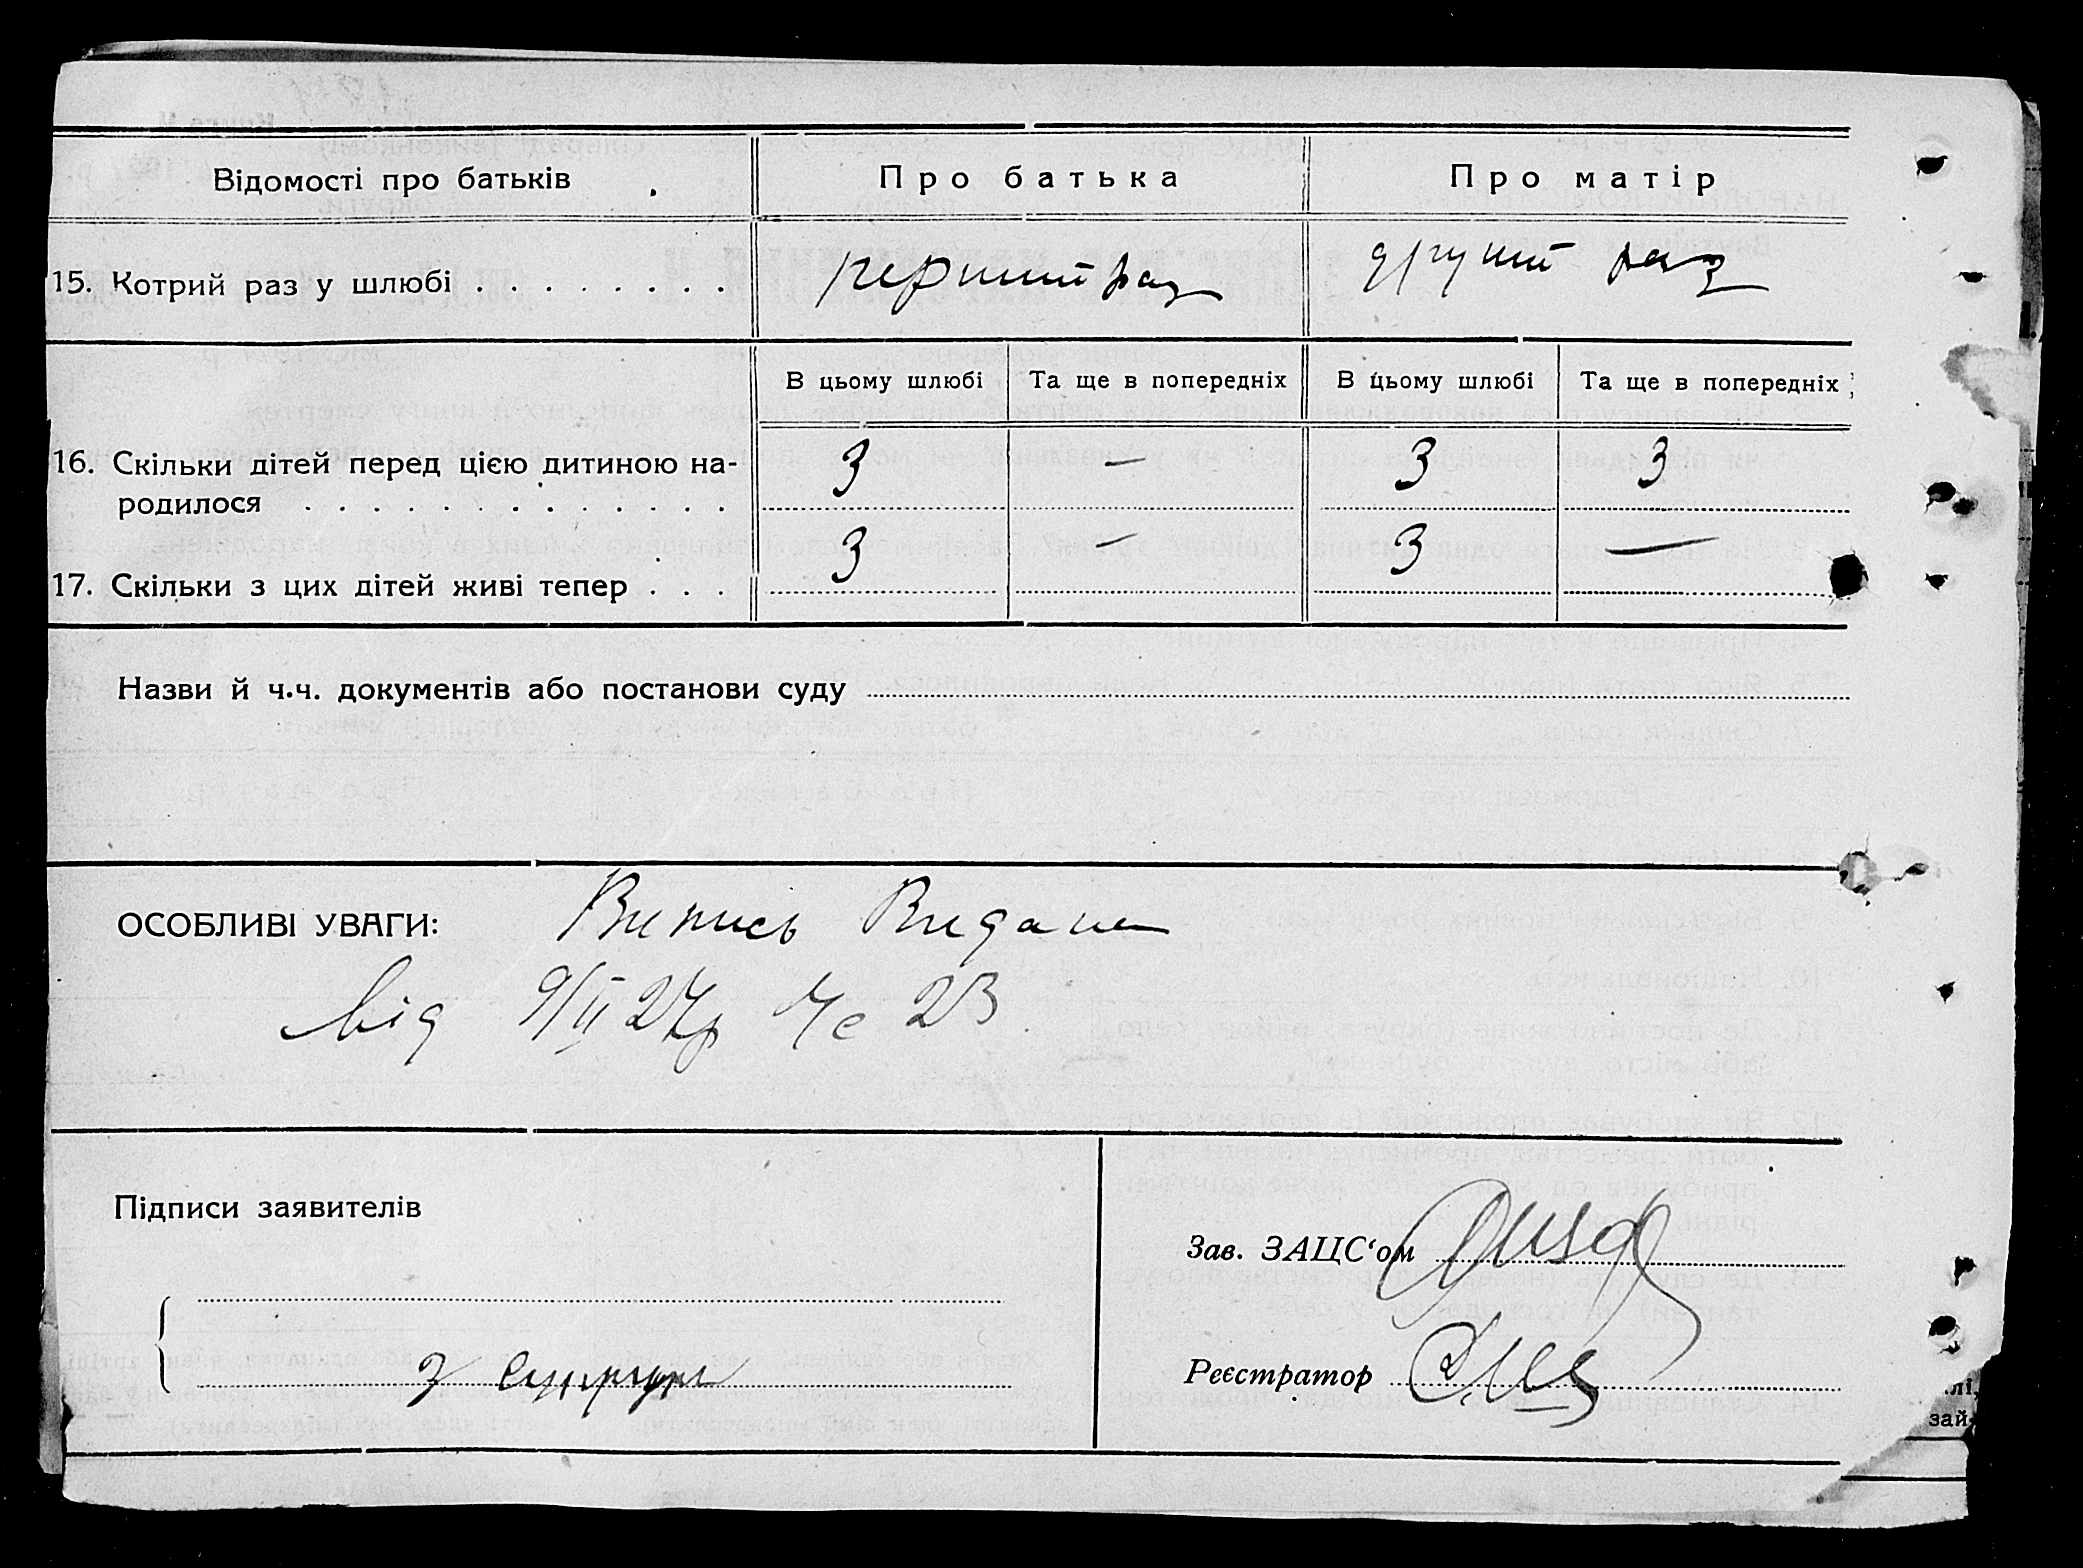 Відомості про батьків Про батька Про матір
15. Котрий раз у шлюбі . . . . . . . . перший раз другий раз
В цьому шлюбі Та ще в попередніх В цьому шлюбі Та ще в попередніх
16. Скільки дітей перед цією дитиною на- 3 — 3 3
родилося . . . . . . . . . . . . .
17. Скільки з цих дітей живі тепер . . . 3 — 3 —
Назви й ч.ч. документів або постанови суду
ОСОБЛИВІ УВАГИ: Випись Видана
від 9/II 27р № 23
Підписи заявителів
Зав. ЗАЦС‘ом
з
Реєстратор
лі,
зай-